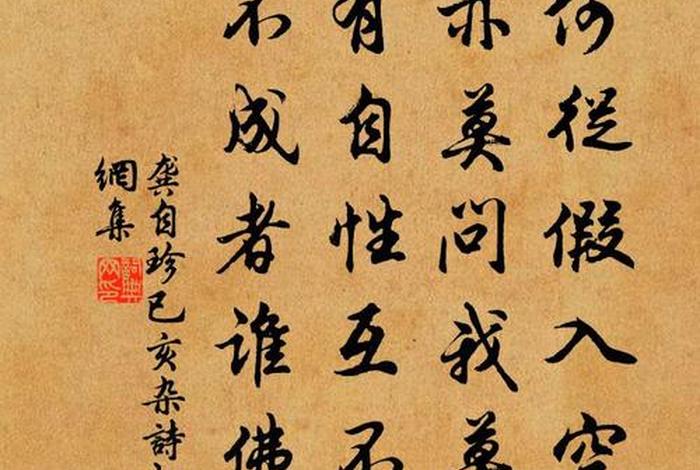 何從假入空
亦莫問我莫
有自性互不
不成者誰佛
龔自珍己亥杂詩
網集
詞典
网印